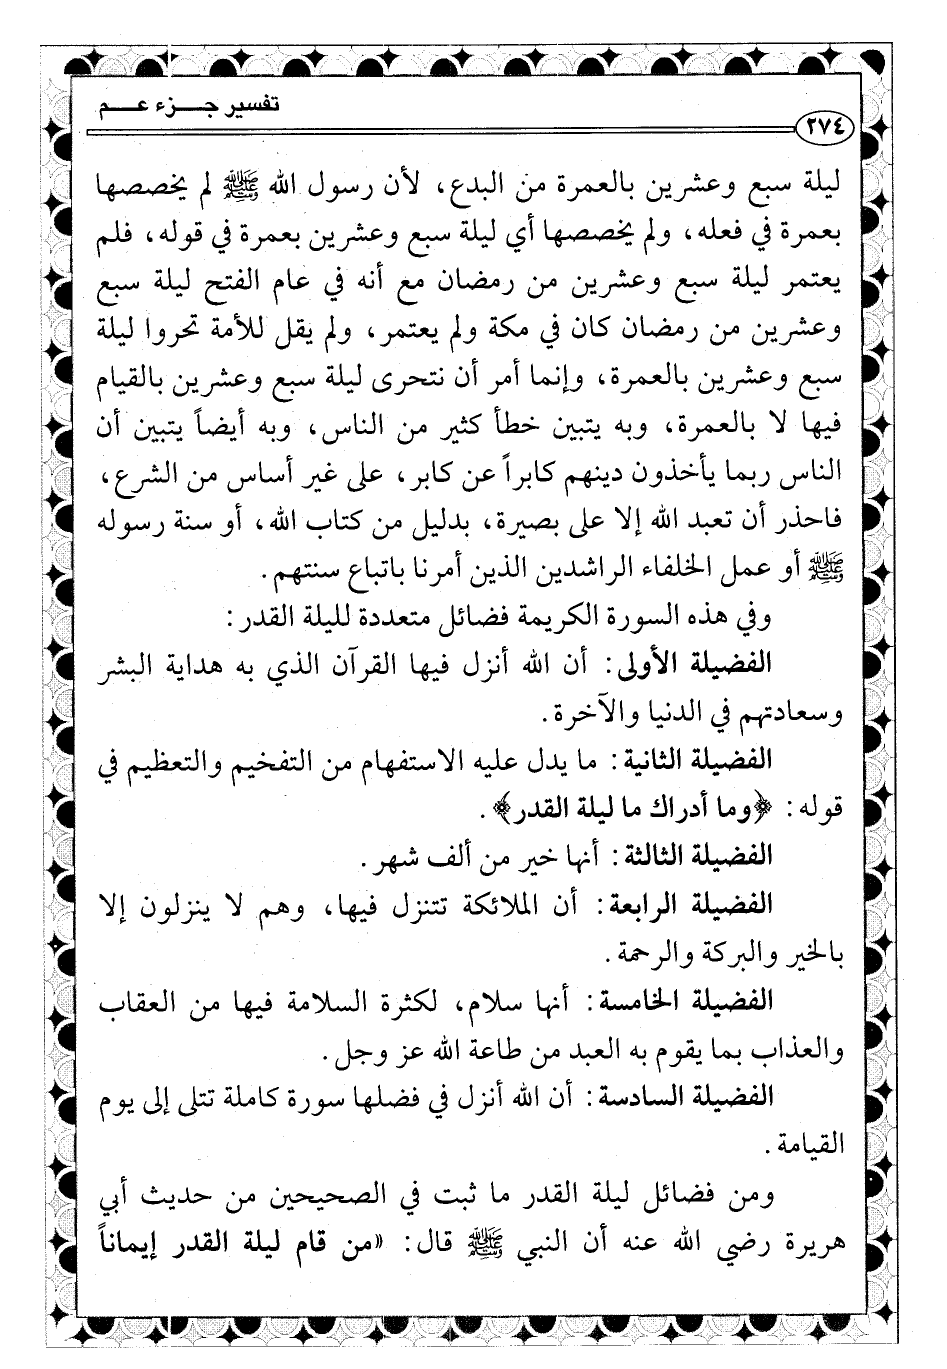 تفسير جـــزء عـــم
٢٧٤
ليلة سبع وعشرين بالعمرة من البدع، لأن رسول الله ﷺ لم يخصصها
بعمرة في فعله، ولم يخصصها أي ليلة سبع وعشرين بعمرة في قوله، فلم
يعتمر ليلة سبع وعشرين من رمضان مع أنه في عام الفتح ليلة سبع
وعشرين من رمضان كان في مكة ولم يعتمر، ولم يقل للأمة تحروا ليلة
سبع وعشرين بالعمرة، وإنما أمر أن نتحرى ليلة سبع وعشرين بالقيام
فيها لا بالعمرة، وبه يتبين خطأ كثير من الناس، وبه أيضاً يتبين أن
الناس ربما يأخذون دينهم كابراً عن كابر، على غير أساس من الشرع،
فاحذر أن تعبد الله إلا على بصيرة، بدليل من كتاب الله، أو سنة رسوله
ﷺ أو عمل الخلفاء الراشدين الذين أمرنا باتباع سنتهم.
وفي هذه السورة الكريمة فضائل متعددة لليلة القدر:
الفضيلة الأولى: أن الله أنزل فيها القرآن الذي به هداية البشر
وسعادتهم في الدنيا والآخرة.
الفضيلة الثانية: ما يدل عليه الاستفهام من التفخيم والتعظيم في
قوله: ﴿وما أدراك ما ليلة القدر﴾.
الفضيلة الثالثة: أنها خير من ألف شهر.
الفضيلة الرابعة: أن الملائكة تتنزل فيها، وهم لا ينزلون إلا
بالخير والبركة والرحمة.
الفضيلة الخامسة: أنها سلام، لكثرة السلامة فيها من العقاب
والعذاب بما يقوم به العبد من طاعة الله عز وجل.
الفضيلة السادسة: أن الله أنزل في فضلها سورة كاملة تتلى إلى يوم
القيامة.
ومن فضائل ليلة القدر ما ثبت في الصحيحين من حديث أبي
هريرة رضي الله عنه أن النبي ﷺ قال: «من قام ليلة القدر إيماناً